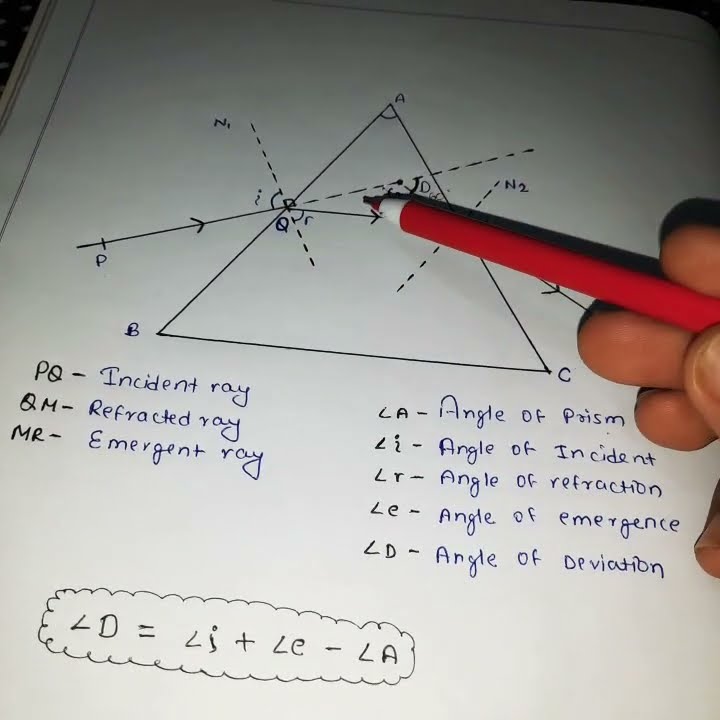 A
N₁
N2
D
i
r
Q
P
B
C
PQ - Incident ray
QM - Refracted ray
MR - Emergent ray
∠A - Angle of Prism
∠i - Angle of Incident
∠r - Angle of refraction
∠e - Angle of emergence
∠D - Angle of Deviation
∠D = ∠i + ∠e - ∠A